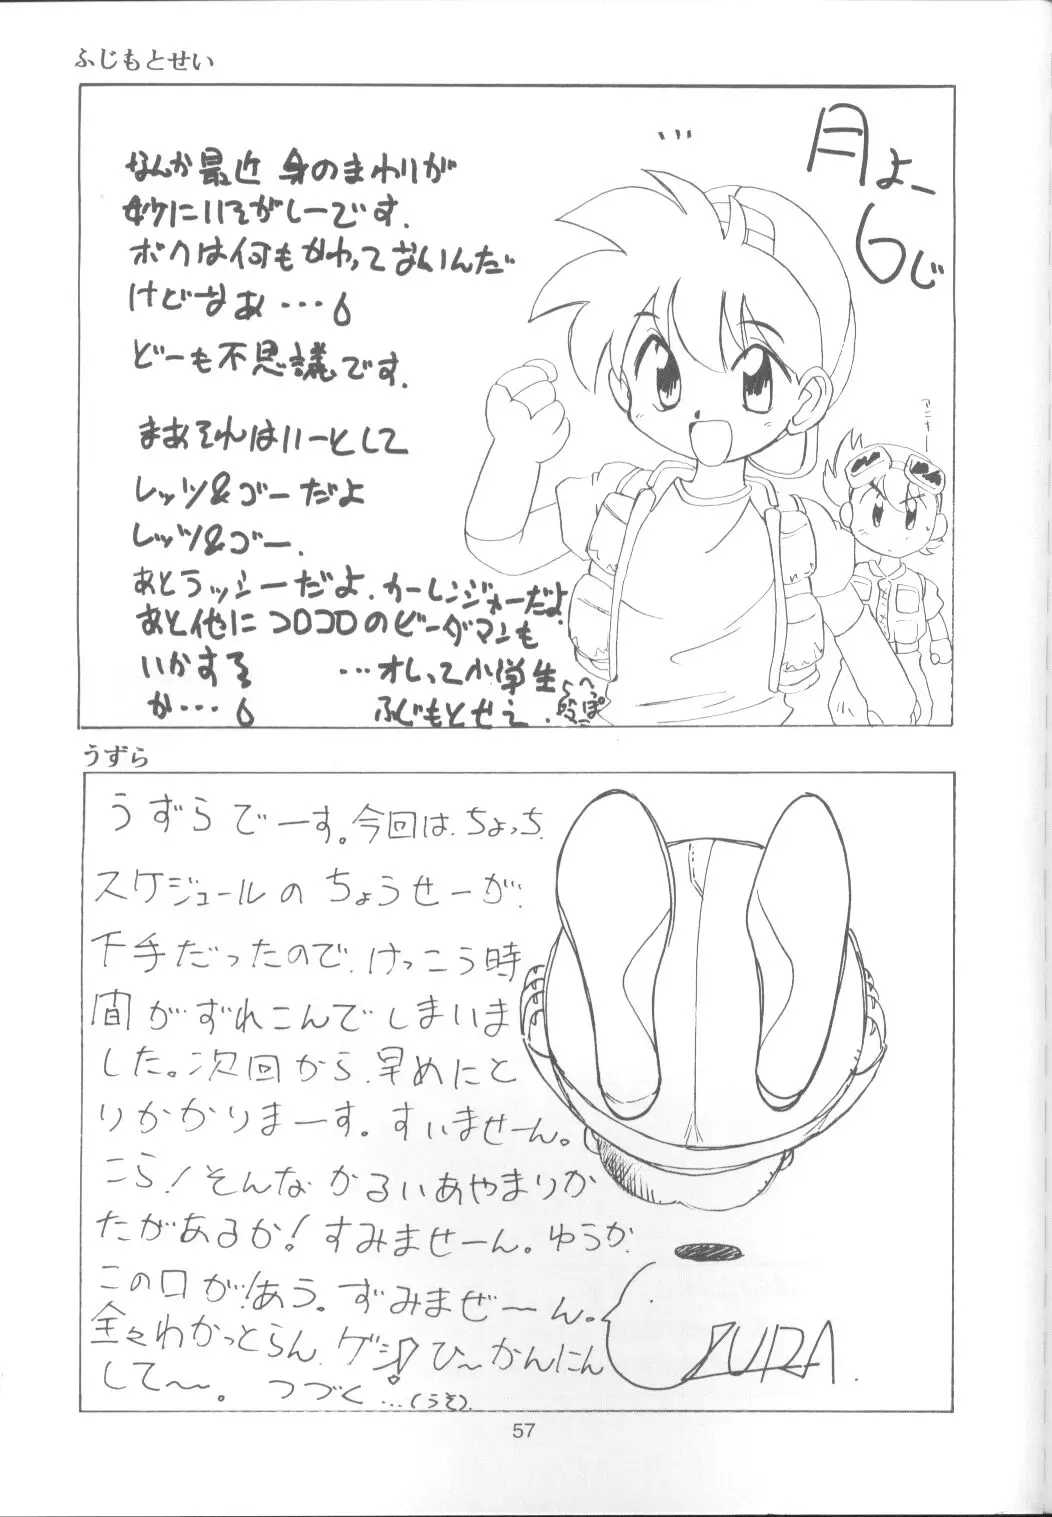 ふじもとせい
月よー
6じ
なんか最近 身のまわりが
妙にいそがしーです.
ボクは何もかわってないんだ
けどなあ・・・
どーも不思議です.
まあそれはいーとして
レッツ&ゴーだよ
レッツ&ゴー.
あとラッシーだよ.カーレンジャーだよ
あと他にコロコロのビーダマンも
いかすな
か・・・
…オレって小学生
ふじもとせえ.
アニキー
うずら
うずらでーす。今回は、ちょっち
スケジュールのちょうせーが
下手だったので、けっこう時
間がずれこんでしまいま
した。次回から、早めにと
りかかりまーす。すいませーん。
こら!そんなかるいあやまりか
たがあるか!すみませーん。ゆうか、
この口が!あう。ずみまぜーん。
全々わかっとらん、ゲシ!ひ〜かんにん
して〜〜。つづく…(うそ).
UZURA.
57